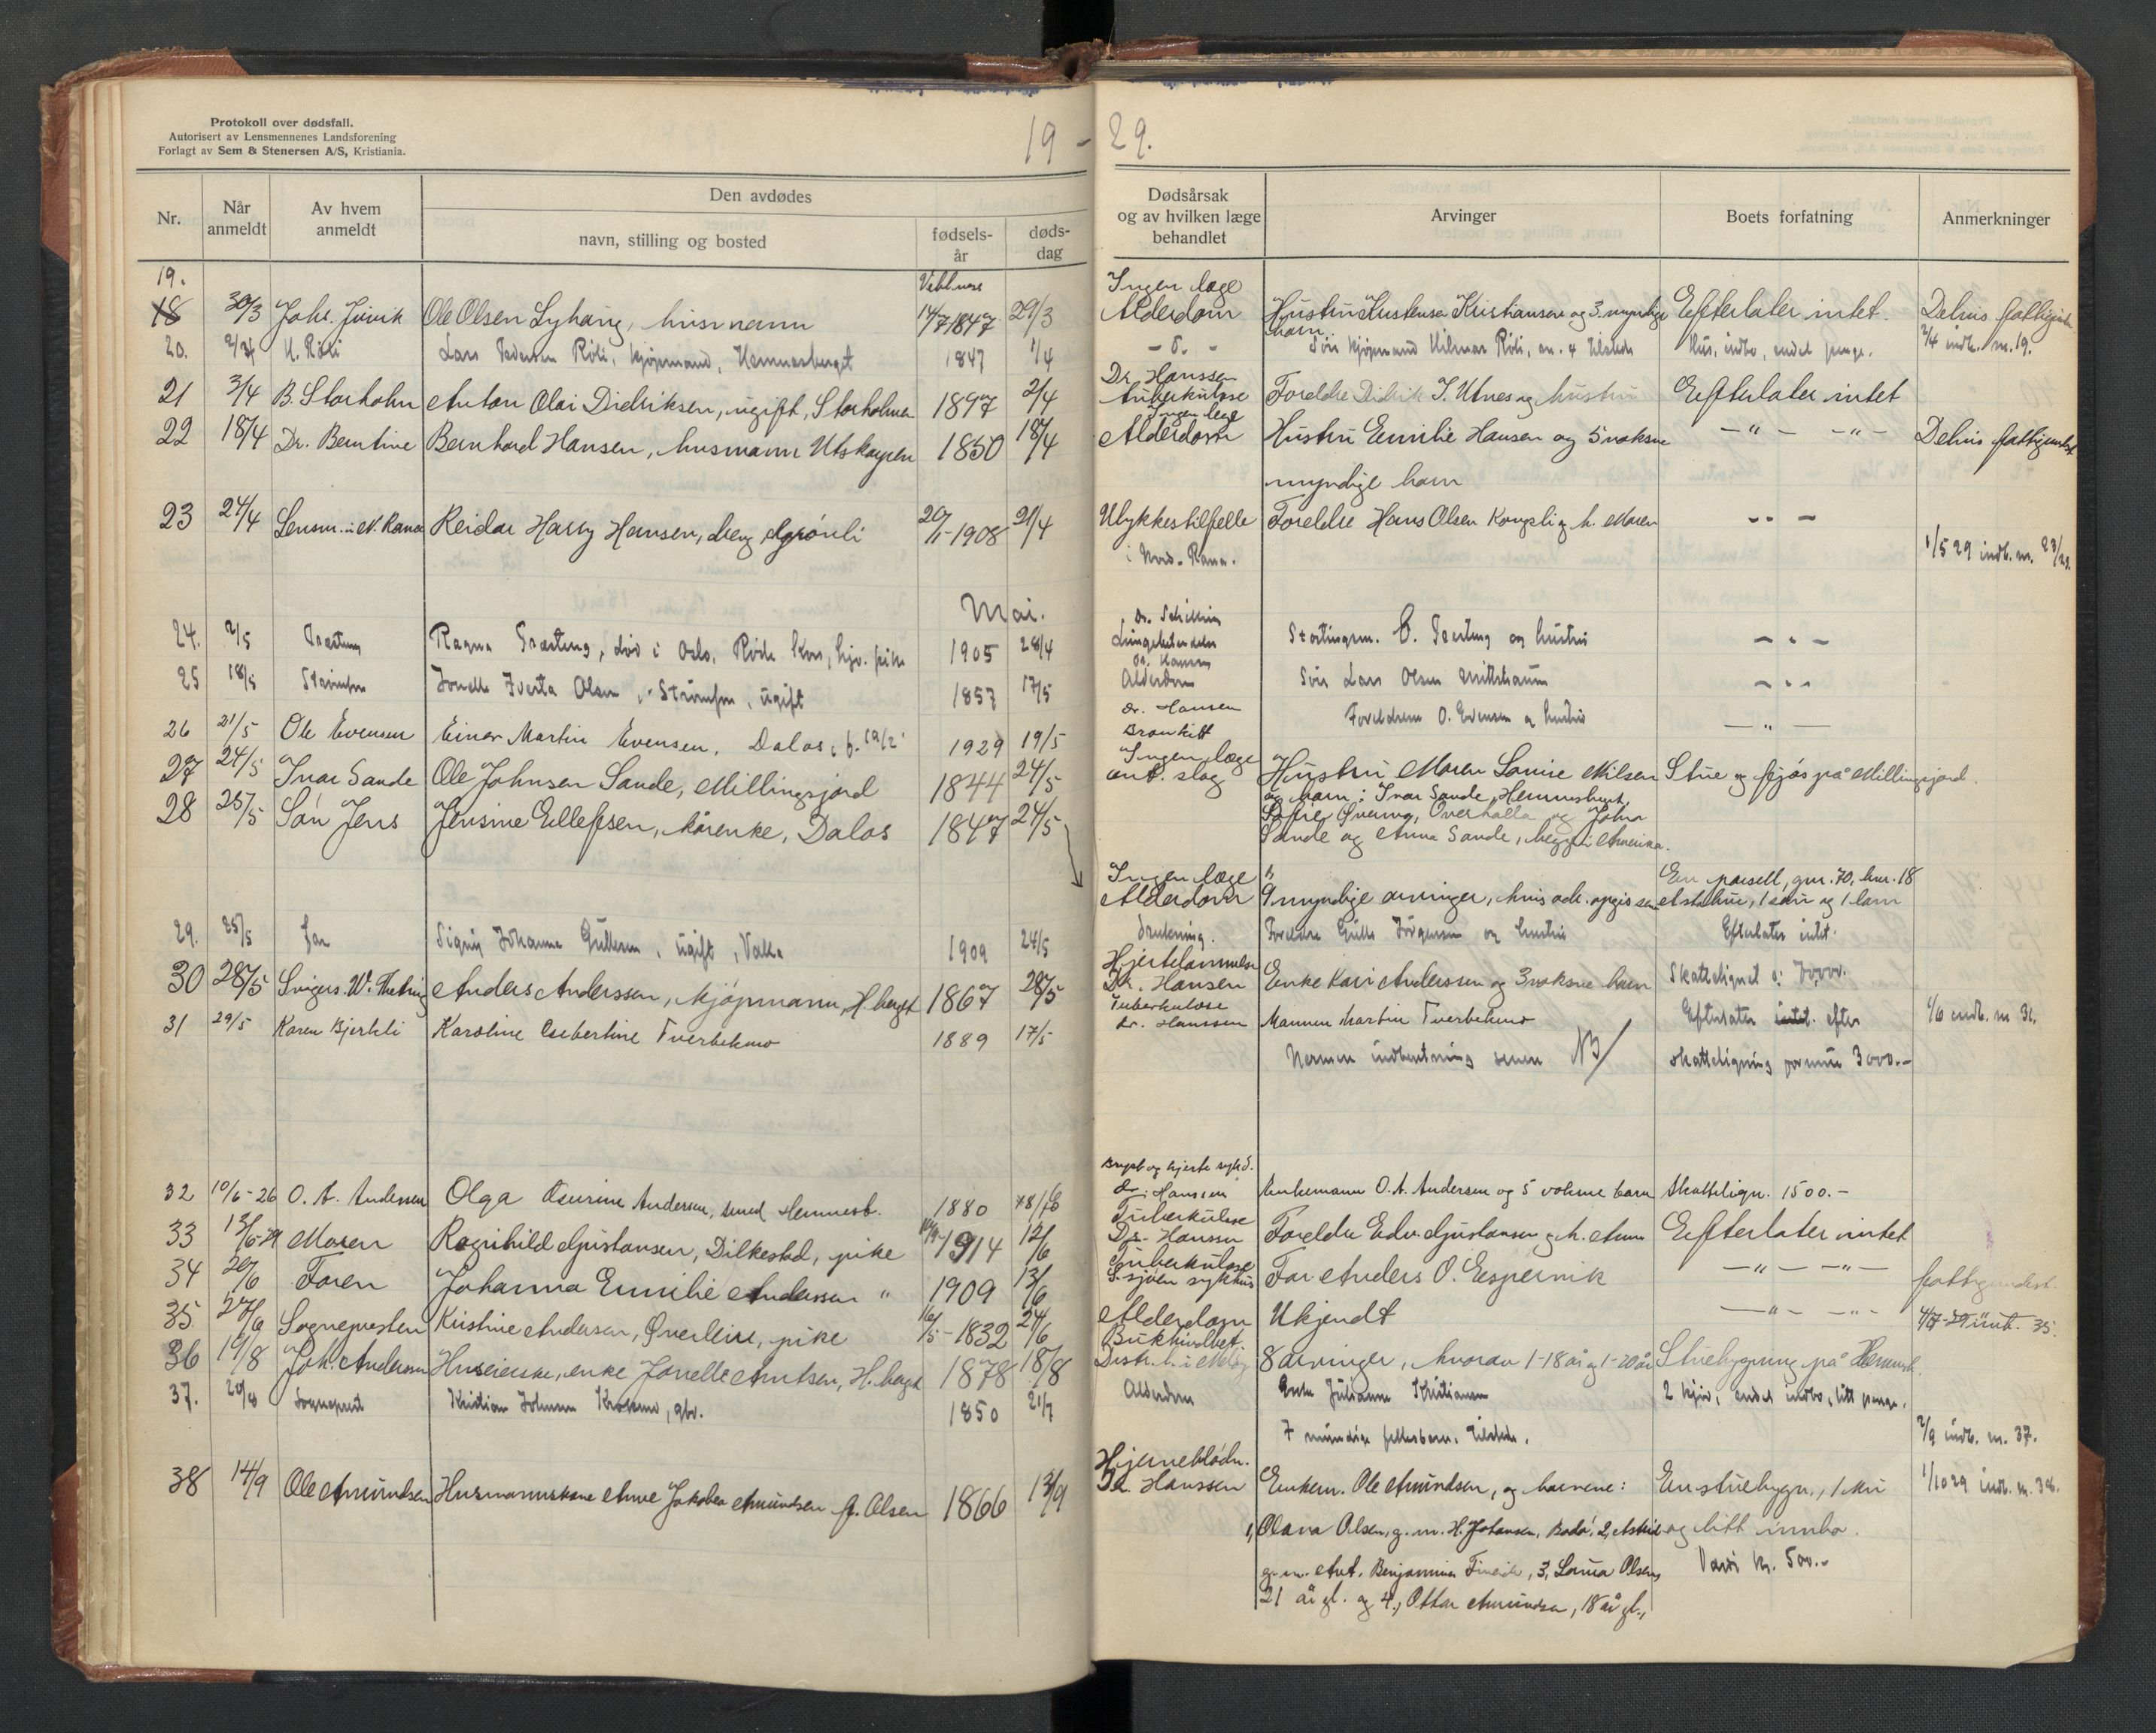 Protokoll over dødsfall.
Autorisert av Lensmennenes Landsforening
Forlagt av Sem & Stenersen A/S, Kristiania.
19 - 29.
Nr. Når anmeldt Av hvem anmeldt Den avdødes navn, stilling og bosted fødsels-år døds-dag Dødsårsak og av hvilken læge behandlet Arvinger Boets forfatning Anmerkninger
19. Ingen læge
18 30/3 Johs. Juvik Ole Olsen Lyhaug, husmann 14/7 1847 29/3 Alderdom Hustru Kristiansen og 3 myndige Efterlater intet. Delvis
barn.
20. 2/4 H. Röli Lars Pedersen Röli, kjøpmand, Hemnesberget 1847 1/4 - D. - Sön kjøpmand Hilmar Röli, en. 4 tilstede Hus, indbo, endel penge. 2/4 indb. nr. 19.
Dr. Hanssen
21 3/4 B. Storholm Anton Olai Didriksen, ugift, Storholmen 1897 2/4 Tuberkulose Foreldre Didrik J. Utnes og hustru Efterlater intet
Ingen læge
22 18/4 Dr. Berntine Bernhard Hansen, husmann Utskarpen 1850 18/4 Alderdom Hustru Emilie Hansen og 5 voksne -"- -"- Delvis
myndige barn
23 24/4 Lensm. i N. Rana Reidar Harry Hansen, Grönli 20/1-1908 21/4 Ulykkestilfelle Foreldre Hans Olsen Kongsli og h. Maren -"-
i Nord-Rana. 1/5 29 indb. nr. 23/29.
Mai.
Dr.
24. 2/5 Træting Ragna Træting, död i Oslo, Röde Kors, hjv. pike 1905 28/4 Stortingsm. C. Træting og hustru -"-
Dr. Hanssen
25 18/5 Strömfors Jonelle Iverta Olsen, Strömfors, ugift 1857 17/5 Alderdom Sön Lars Olsen -"-
Dr. Hansen
26 21/5 Ole Evensen Einar Martin Evensen, Dalos, f. 19/2 1929 19/5 Bronkitt Foreldrene O. Evensen og hustru -"-
Ingen læge
27 24/5 Ivar Sande Ole Johnsen Sande, Millingsjord 1844 24/5 ant. slag Hustru Maren Lovise Nilsen Stue og fjös på Millingsjord.
og barn: Ivar Sande, Hemnesberget,
28 25/5 Sön Jens Jensine Ellefsen, kårenke, Dalos 1847 24/5 Överhalla og Johan
Sande og Anna Sande, begge i Amerika.
Ingen læge En parsell, gnr. 70, bnr. 18
Alderdom 9 myndige arvinger, hvis adr. opgis senere 1 sau og 1 lam
29. 25/5 far Signy Johanne Gullesen, ugift, Valla 1909 24/5 Drukning. Foreldre Gulle Jörgensen og hustru Efterlater intet.
Hjertelammelse
30 28/5 Svigers. W. Thetring Anders Anderssen, kjöpmann, H.berget 1867 28/5 Dr. Hansen Enke Kari Anderssen og 3 voksne barn Skattelignet
Tuberkulose
31 29/5 Karen Bjerkli Karoline Esebertine Tverbekmo 1889 17/5 dr. Hanssen Mannen Martin Tverbekmo Efterlater intet. efter 1/6 indb. nr 31.
Nermere indberetning senere NB/ skatteligning formue 3000.-
Bryst og hjerte sykd.
32 10/6-26 O. A. Andersen Olga Oserine Andersen, smed Hemnesb. 1880 8/6 dr. Hanssen Enkemann O. A. Andersen og 5 voksne barn Skattelign. 1500.-
Tuberkulose
33 13/6-29 Moren Ragnhild Gustavsen, Dilkestad, pike 1914 12/6 Dr. Hanssen Foreldre Edv. Gustavsen og h. Anna Efterlater intet
Tuberkulose
34 20/6 Faren Johanna Emilie Anderssen " 1909 13/6 S.sjöen sykehus Far Anders O. Espernik -"- -"-
35 27/6 Sognepresten Kristine Andersen, Överleir, pike 16/5-1832 24/6 Alderdom Ukjendt -"- -"- 4/7-29 innb. 35.
Bukhindebet.
36 19/8 Joh. Andersen Huseierske, enke Jonelle Arntsen, H.berget 1878 18/8 Distr. l. i 8 arvinger, hvorav 1-18 år og 1-20 år Stuebygning på Hemnesb.
37. 20/8 Sogneprest Kristian Johnsen 1850 21/7 Alderdom Enke Julianne Kristiansen 2 kjör, endel indbo, litt penge.
7 myndige fellesbarn. tilstede. 2/9 indb. nr. 37.
Hjerneblödn.
38 14/9 Ole Amundsen Husmannskone Anne Jakobea Amundsen f. Olsen 1866 13/9 Dr. Hanssen Enkem. Ole Amundsen, og barnene: En stuebygn., 1 ku 1/10 29 indb. nr. 38.
1, Olava Olsen, g. m. H. Johansen, Bodö, 2, Astrid og litt innbo.
g. m. Ant. Benjaminsen 3, Laura Olsen, Verdi kr. 500.-
21 år gl. og 4, Ottar Amundsen, 18 år gl.,